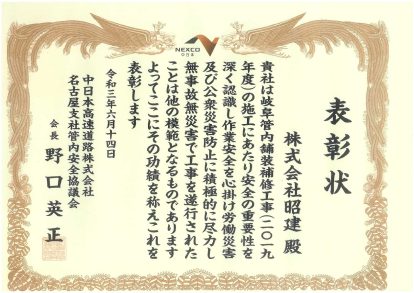 NEXCO
中日本
表彰状
株式会社昭建 殿
貴社は岐阜管内舗装補修工事(二〇一九
年度)の施工にあたり安全の重要性を
深く認識し作業安全を心掛け労働災害
及び公衆災害防止に積極的に尽力し
無事故無災害で工事を遂行された
ことは他の模範となるものであります
よってここにその功績を称えこれを
表彰します
令和三年六月十四日
中日本高速道路株式会社
名古屋支社管内安全協議会
会長 野口英正